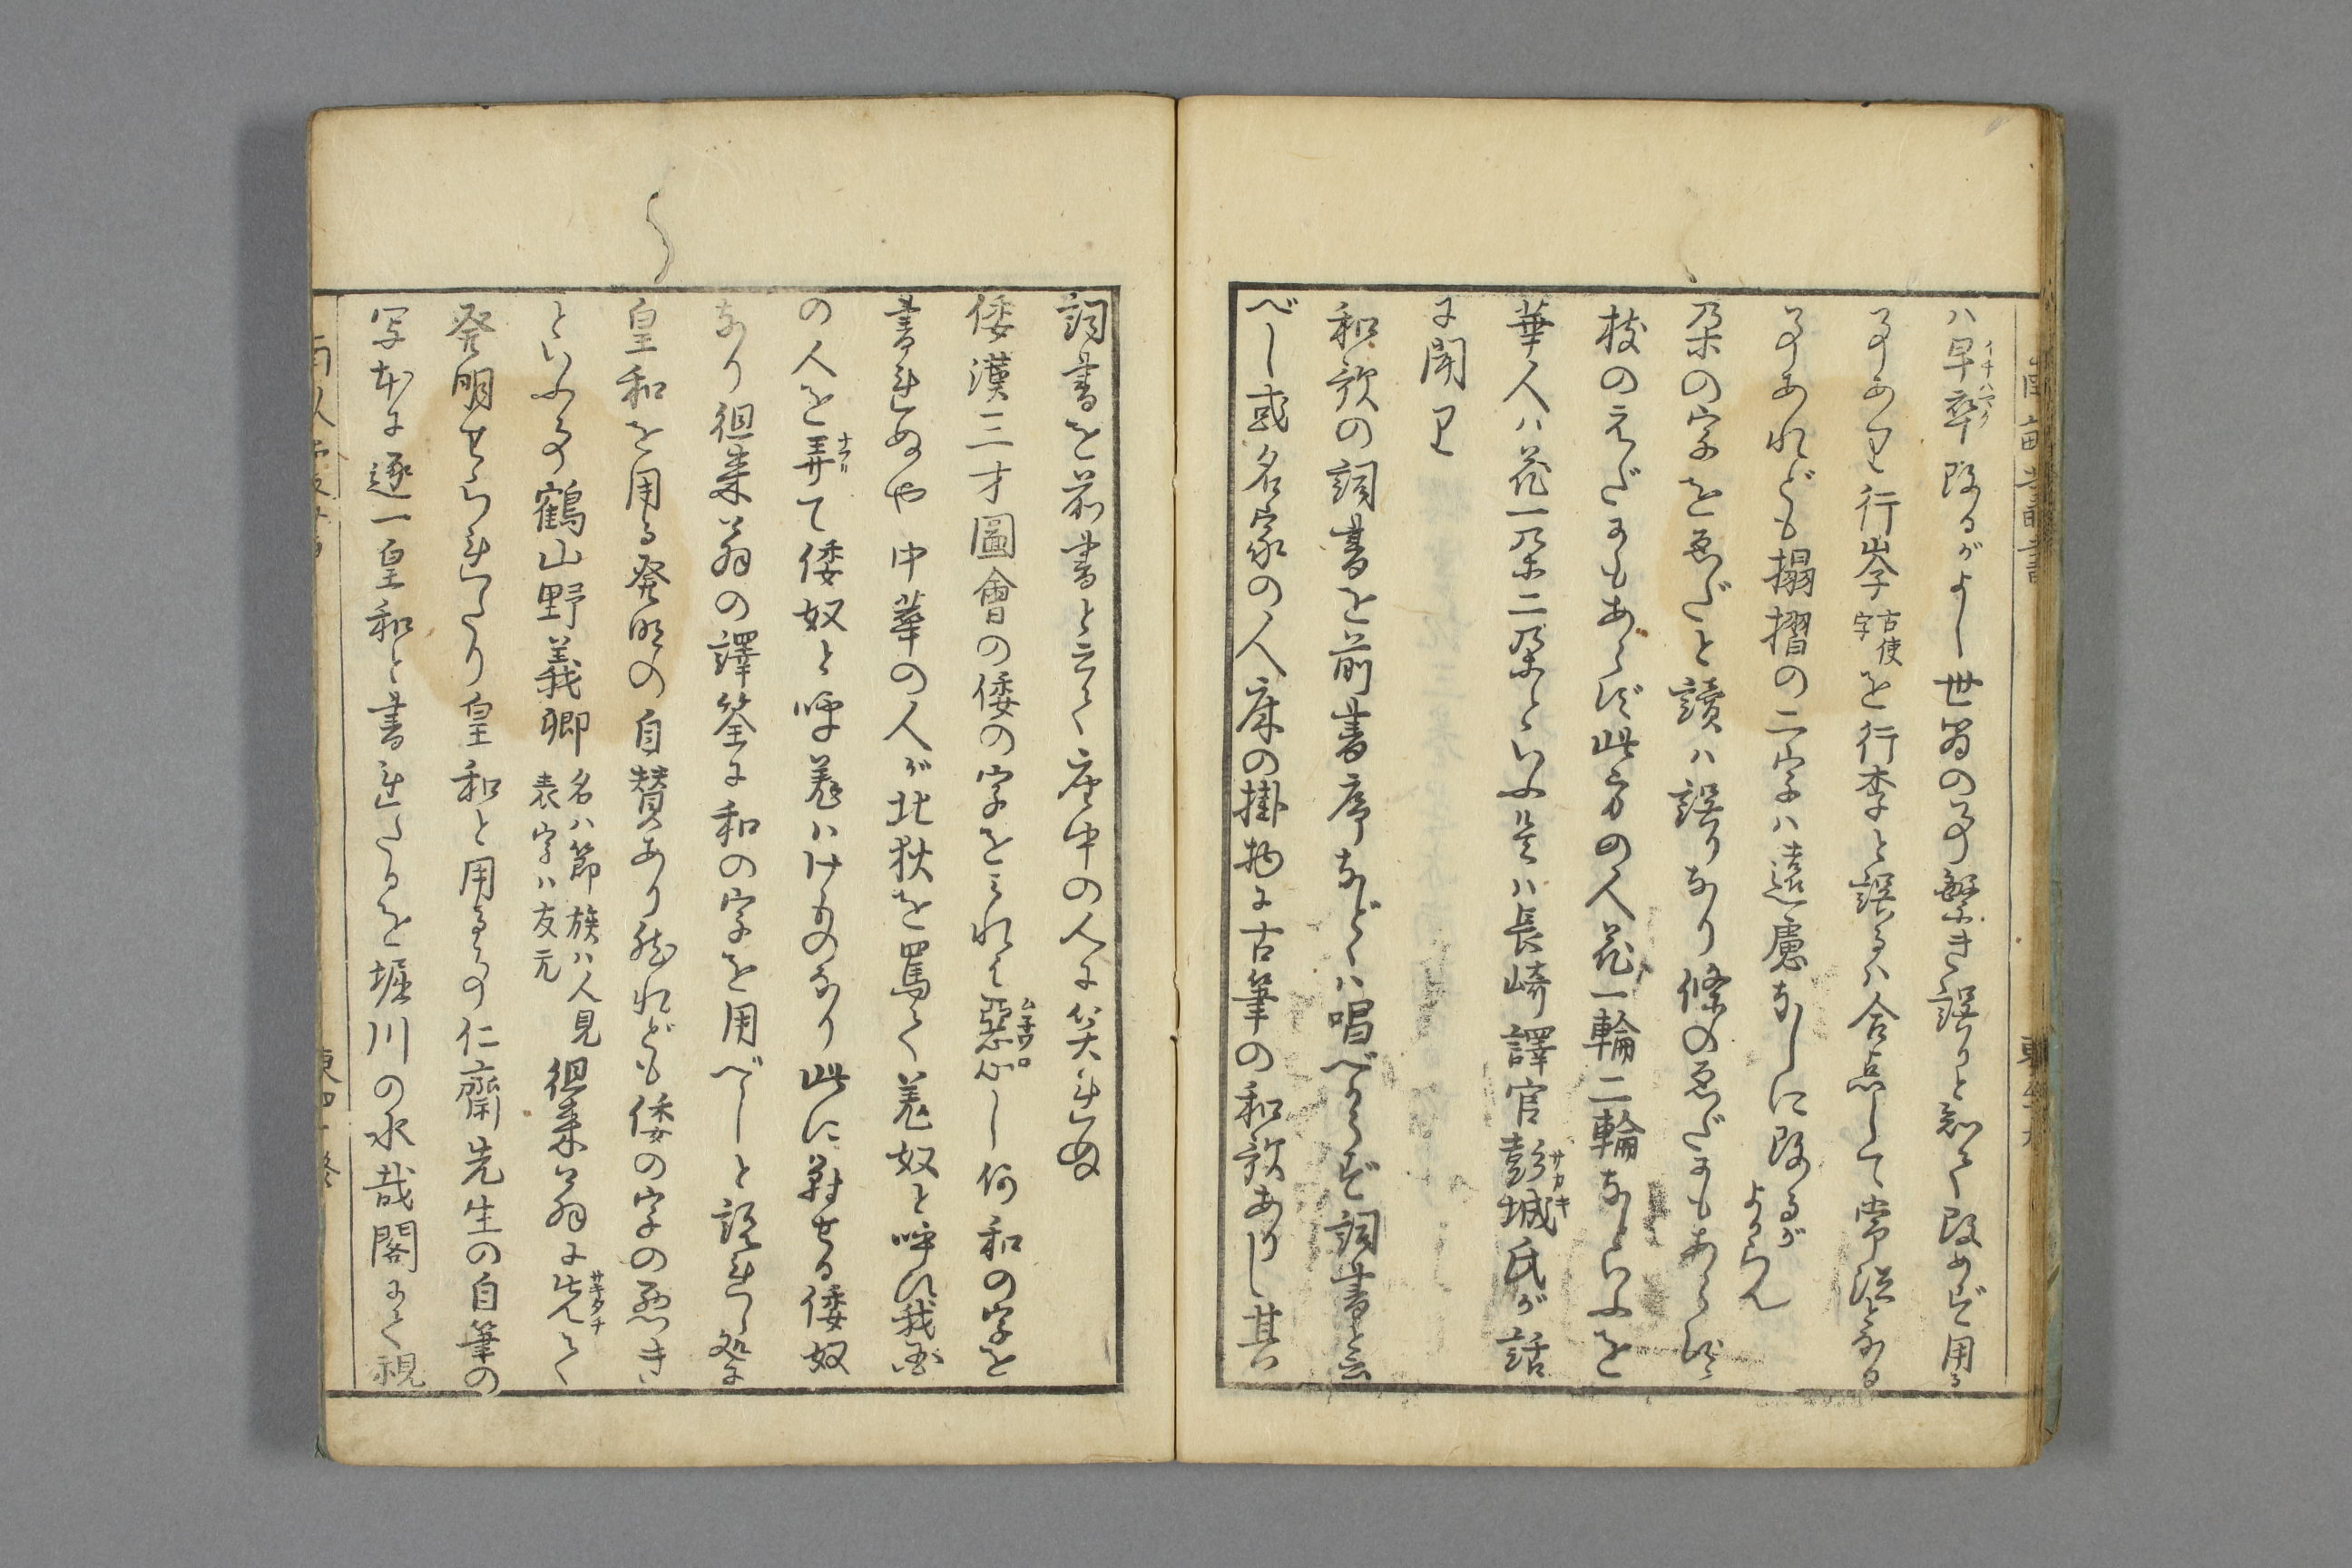 ハ早卒改るがよし世崙の事繁き誤りと知て改めず用る
イチハヤク
事あり行岺古使字を行李と誤るハ合点して常談となる
事あれども搨摺の二字ハ遠慮なしに改るがよからん
朶の字をゑだと讀ハ誤りなり條のゑだにもあらず
枝のえだにもあらず此方の人花一輪二輪なといふを
華人ハ花一朶二朶といふ是ハ長崎譯官彭城氏が話
サカキ
に聞り
和歌の詞書を前書序などゝハ唱べからず詞書と云
べし或名家の人床の掛物に古筆の和歌ありし其
詞書を前書と云て座中の人に笑れぬ
倭漢三才圖會の倭の字をみれば悪心し何和の字を
書れぬや中華の人が北狄を罵て羗奴と呼び我国
の人を弄て倭奴と呼羗ハけものなり此に對せる倭奴
ナブリ
なり徂来翁の譯筌に和の字を用べしと説れし發に
皇和を用る発明の自賛あり然れども倭の字の悪き
といふ事鶴山野義卿名ハ節族ハ人見表字ハ友元徂来翁に先て
サキダチ
発明せられたり皇和と用る事仁齋先生の自筆の
写本に逐一皇和と書れたるを堀川の水哉閣にて視